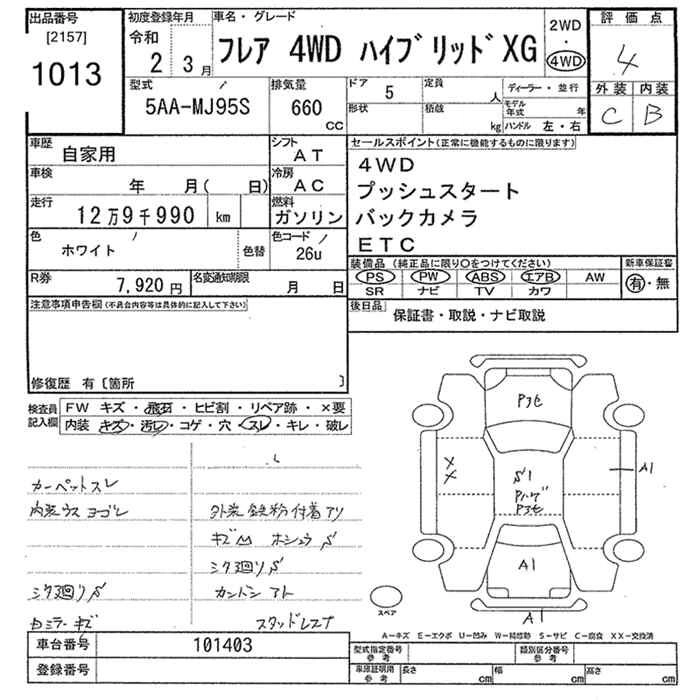 出品番号
[2157]
1013
初度登録年月
令和
2 3月
車名・グレード
フレア 4WD ハイブリッド XG
2WD
・
4WD
評価点
4
外装 内装
C B
型式
5AA-MJ95S
排気量
660
CC
ドア
5
定員
人
形状
積載
kg
ディーラー・並行
モデル年式 年
ハンドル 左・右
車歴
自家用
シフト
AT
車検
年 月( 日)
冷房
AC
走行
12万9千990 km
燃料
ガソリン
色
ホワイト
色替
色コード
26u
R券
7,920円
名変通知期限
月 日
セールスポイント(正常に機能するものに限ります)
4WD
プッシュスタート
バックカメラ
ETC
装備品 (純正品に限り○をつけてください)
新車保証書
PS PW ABS エアB AW
SR ナビ TV カワ
有・無
後日品
保証書・取説・ナビ取説
注意事項申告欄(不具合内容等は具体的に記入して下さい)
修復歴 有〔箇所 〕
検査員記入欄
FW キズ・飛石・ヒビ割・リペア跡・×要
内装 キズ・汚レ・コゲ・穴・スレ・キレ・破レ
カーペットスレ
内装ウスヨゴレ
外装鉄粉付着アリ
シタ廻りS
シタ廻りS
カントンアト
ドミラーキズ
スタッドレス7
P7モ
XX
S1
A1
A1
A1
スペア
A-キズ E-エクボ U-凹み W-補修跡 S-サビ C-腐食 XX-交換済
車台番号
101403
登録番号
型式指定番号
参考
類別区分番号
参考
車庫証明用
参考
長さ cm
幅 cm
高さ cm